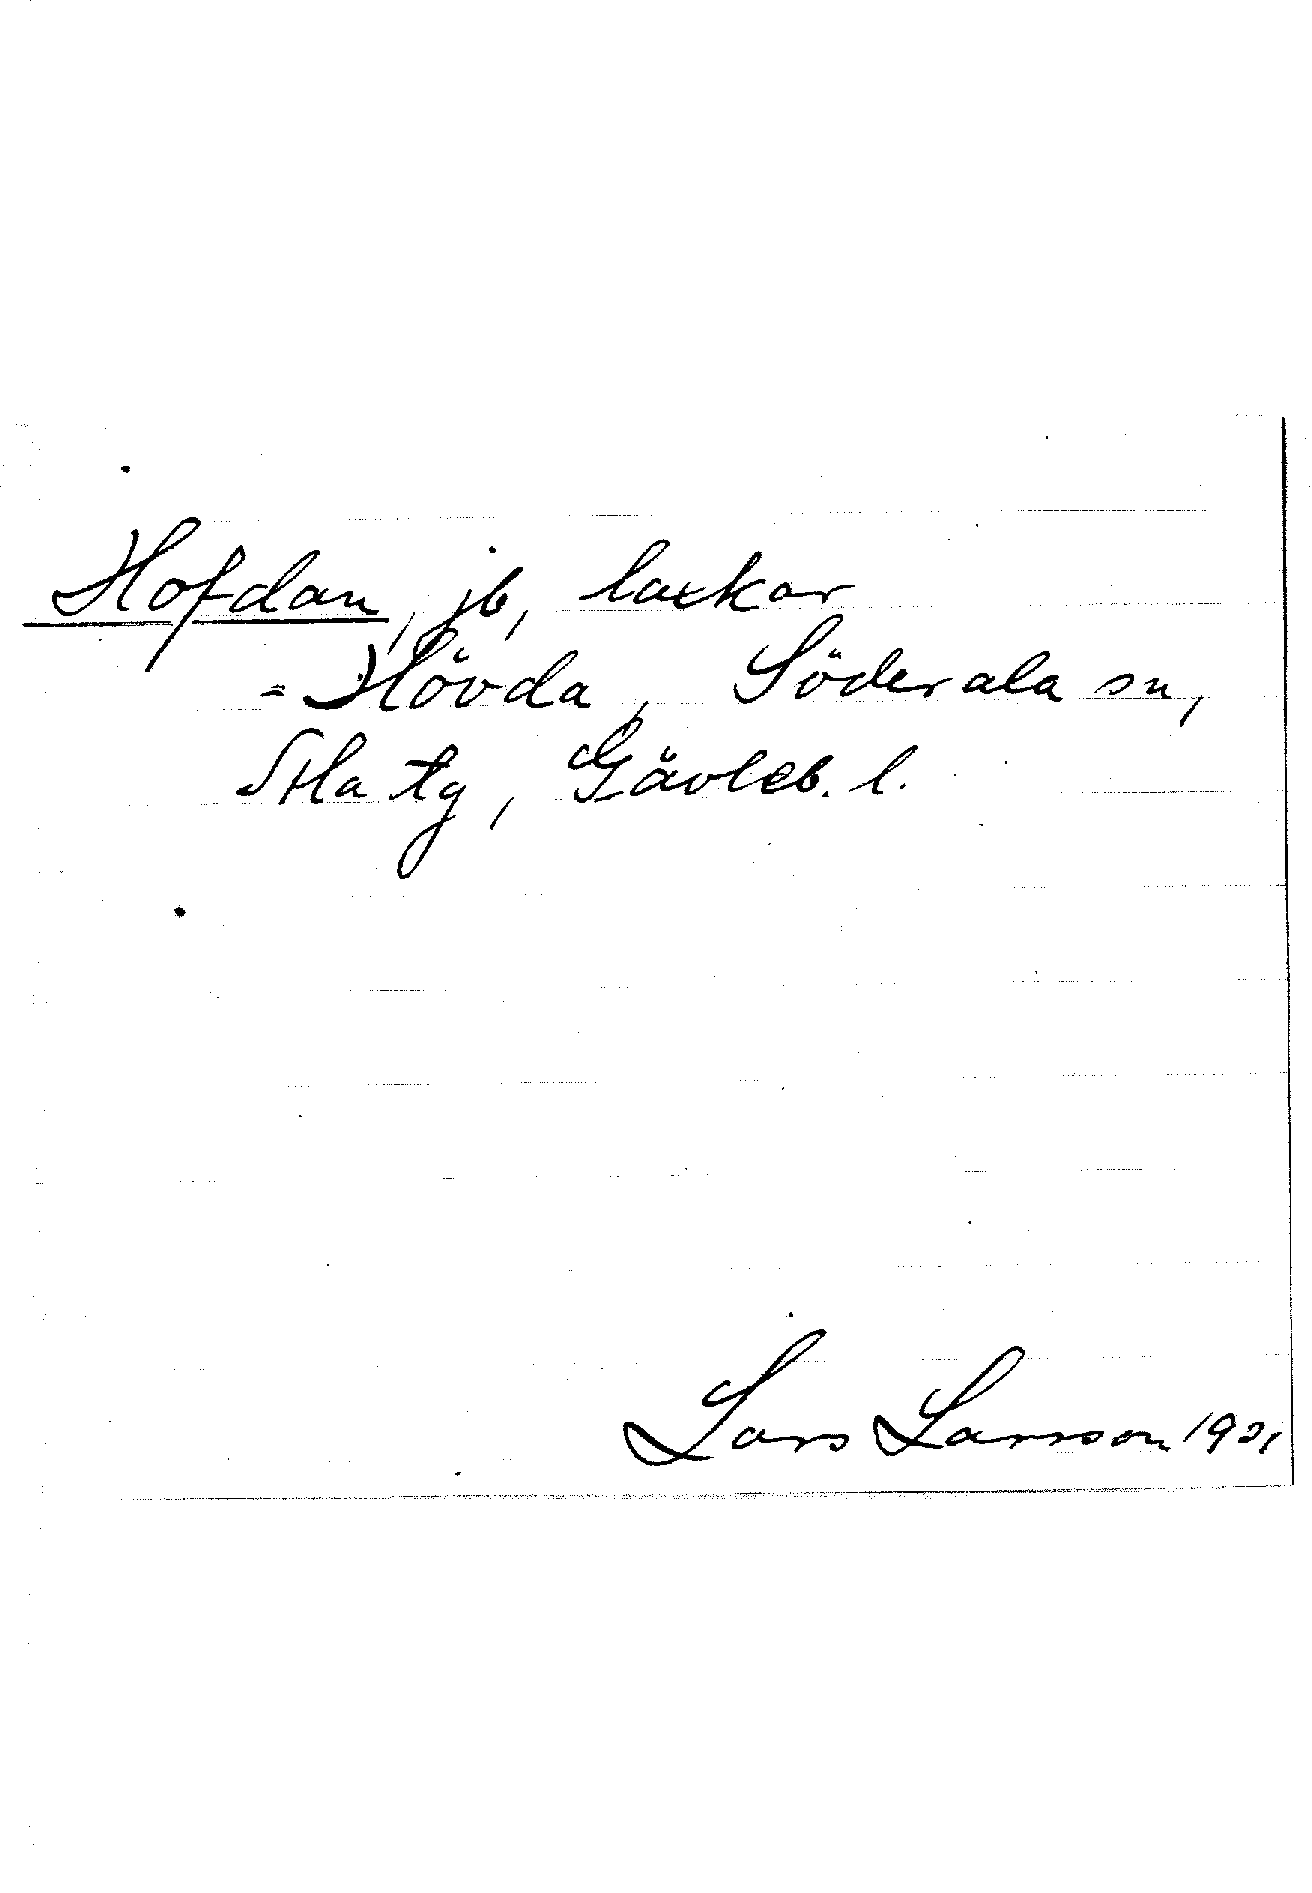 Hofdan, jb, backar
= Hövda, Söderala sn,
Ala tg, Gävleb. l.
Lars Larsson 1921